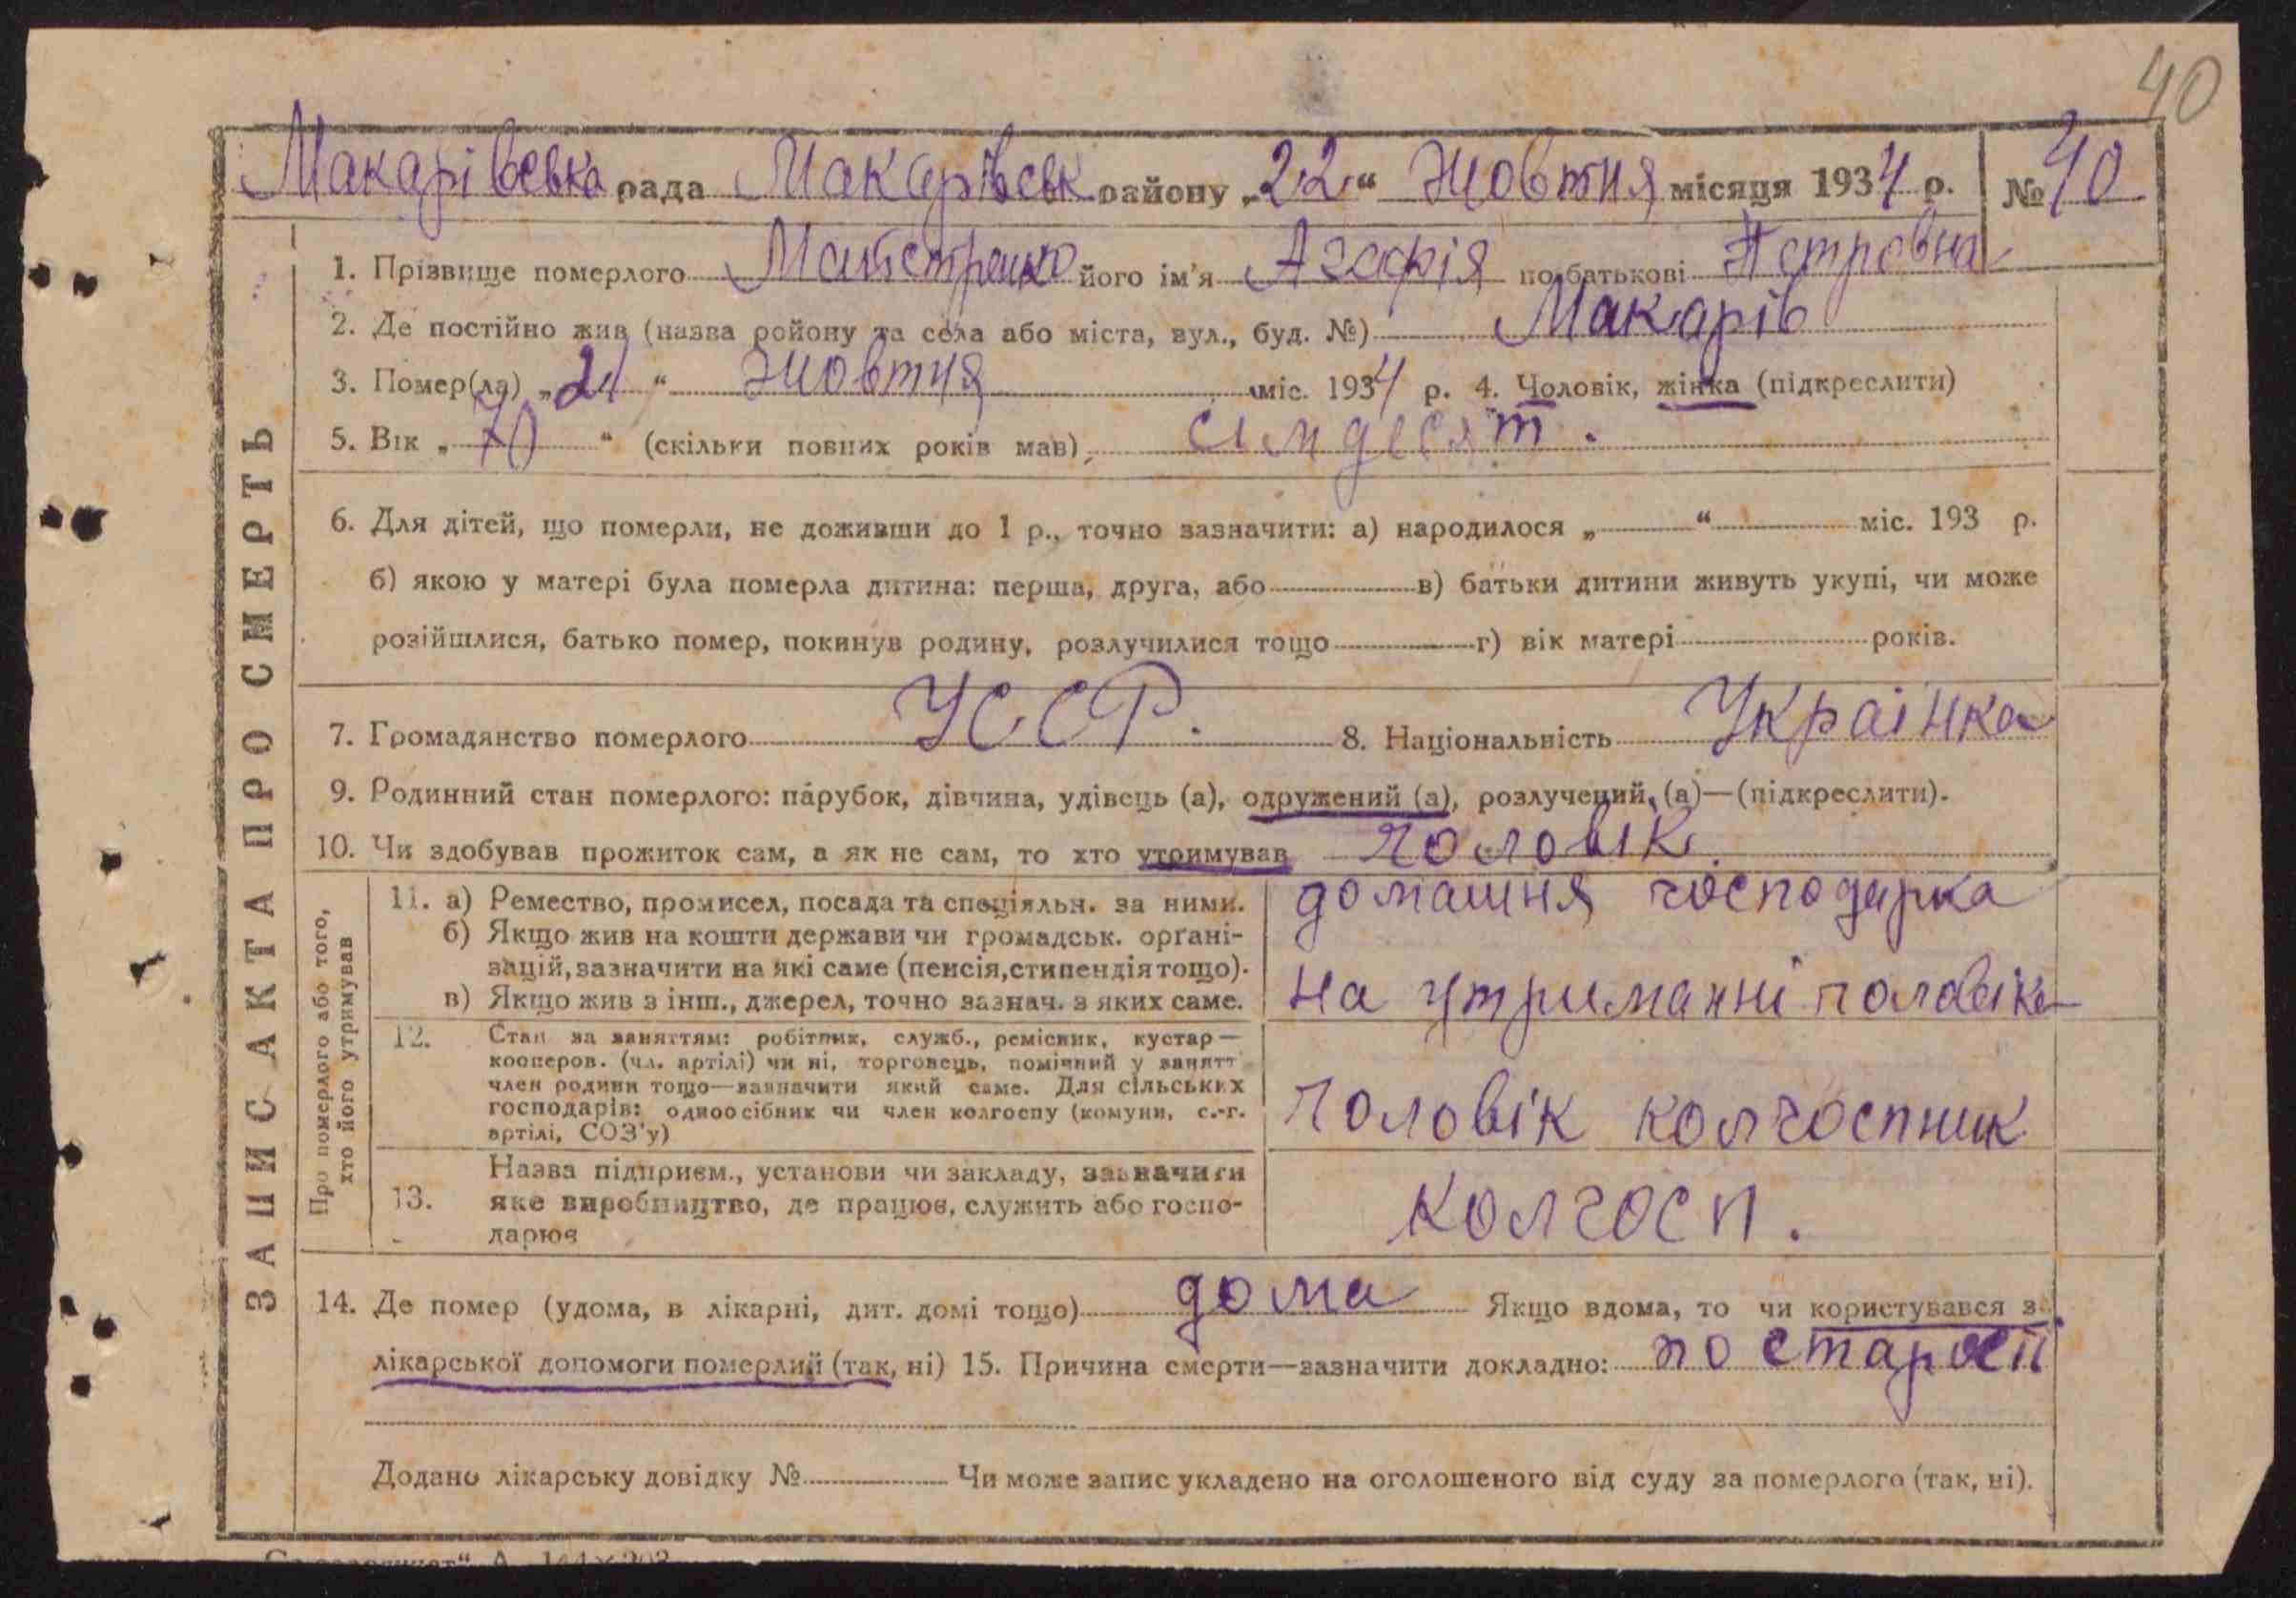 40
Макарівська рада Макарівськ району „22“ Жовтня місяця 1934 р. № 40
1. Прізвище померлого Майстренко його ім'я Агафія по батькові Петровна
2. Де постійно жив (назва району та села або міста, вул., буд. №) Макарів
3. Помер(ла) „21“ Жовтня міс. 1934 р. 4. Чоловік, жінка (підкреслити)
5. Вік „70“ (скільки повних років мав) симдесят.
6. Для дітей, що померли, не доживши до 1 р., точно зазначити: а) народилося „ “ міс. 193 р.
б) якою у матері була померла дитина: перша, друга, або в) батьки дитини живуть укупі, чи може
розійшлися, батько помер, покинув родину, розлучилися тощо г) вік матері років.
7. Громадянство померлого УССР. 8. Національність Українка
9. Родинний стан померлого: парубок, дівчина, удівець (а), одружений (а), розлучений, (а)—(підкреслити).
10. Чи здобував прожиток сам, а як не сам, то хто утримував чоловік.
ЗАПИС АКТА ПРО СМЕРТЬ
Про померлого або того,
хто його утримував
11. а) Ремество, промисел, посада та спеціяльн. за ними.
б) Якщо жив на кошти держави чи громадськ. орґані-
зацій, зазначити на які саме (пенсія, стипендія тощо).
в) Якщо жив з інш., джерел, точно зазнач. з яких саме.
домашня господарка
на утриманні чоловіка
12. Стан за заняттям: робітник, служб., ремісник, кустар—
кооперов. (чл. артілі) чи ні, торговець, помічний у занятт
член родини тощо—зазначити який саме. Для сільських
господарів: одноосібник чи член колгоспу (комуни, с.-г.
артілі, СОЗ'у)
чоловік колгоспник
13. Назва підприєм., установи чи закладу, зазначити
яке виробництво, де працює, служить або госпо-
дарює
колгосп.
14. Де помер (удома, в лікарні, дит. домі тощо) дома Якщо вдома, то чи користувався з
лікарської допомоги померлий (так, ні) 15. Причина смерти—зазначити докладно: по старості
Додано лікарську довідку № Чи може запис укладено на оголошеного від суду за померлого (так, ні).